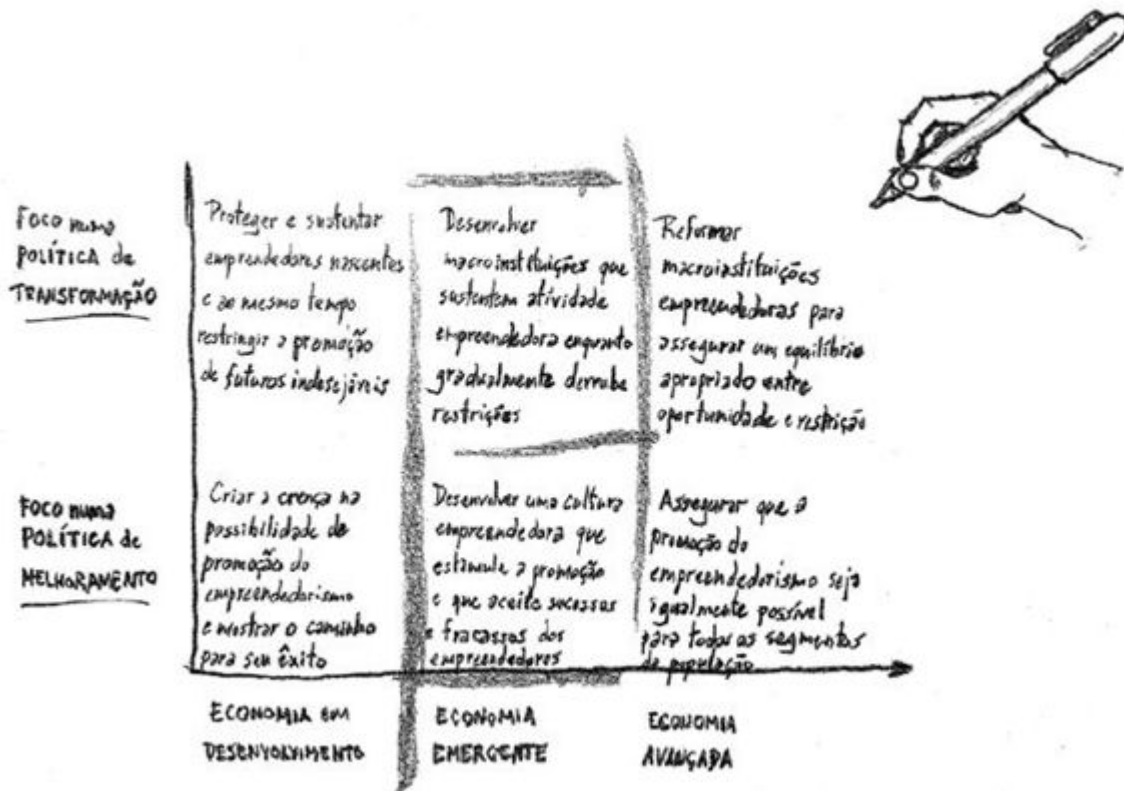 FOCO numa
POLÍTICA de
TRANSFORMAÇÃO
Proteger e sustentar
emprendedores nascentes
e ao mesmo tempo
restringir a promoção
de futuros indesejáveis
Desenvolver
macroinstituições que
sustentem atividade
empreendedora enquanto
gradualmente derrube
restrições
Reformar
macroinstituições
empreendedoras para
assegurar um equilíbrio
apropriado entre
oportunidade e restrição
FOCO numa
POLÍTICA de
MELHORAMENTO
Criar a crença na
possibilidade de
promoção do
empreendedorismo
e mostrar o caminho
para seu êxito
Desenvolver uma cultura
empreendedora que
estimule a promoção
e que aceite sucessos
e fracassos dos
empreendedores
Assegurar que a
promoção do
empreendedorismo seja
igualmente possível
para todos os segmentos
da população
ECONOMIA em
DESENVOLVIMENTO
ECONOMIA
EMERGENTE
ECONOMIA
AVANÇADA